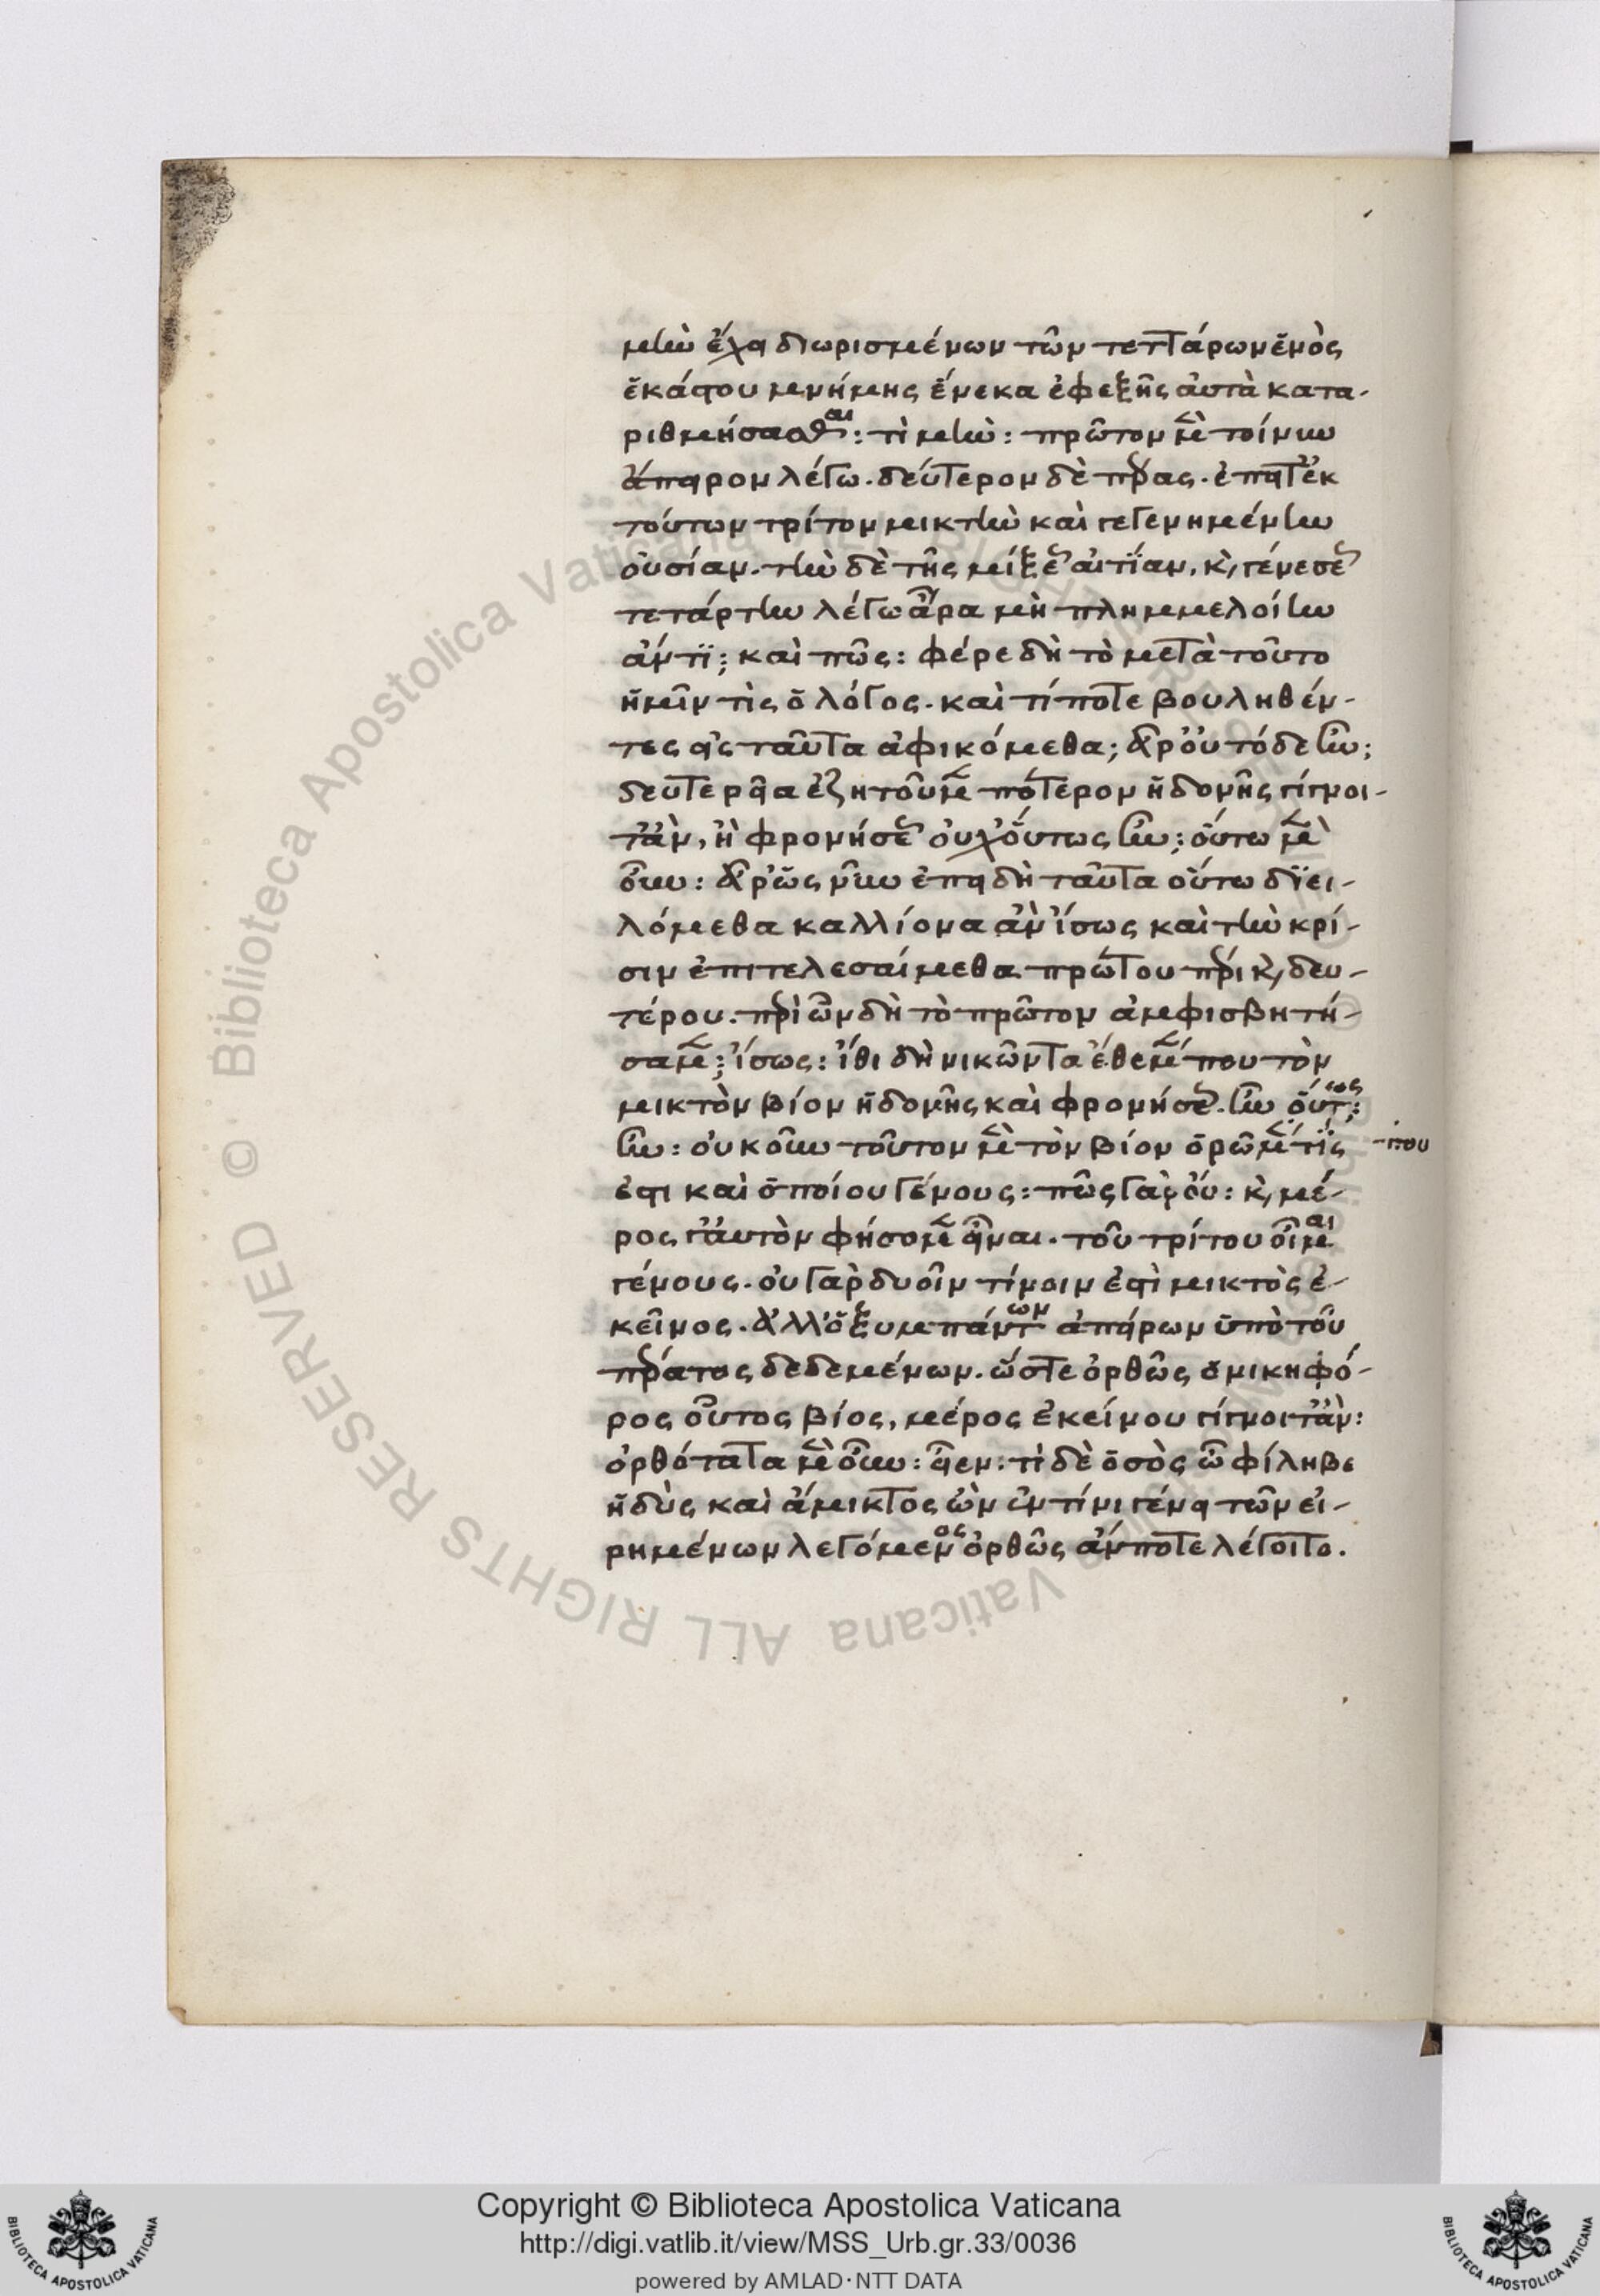 μὴν ἔχει διωρισμένων τῶν τεττάρων ἑνὸς
ἑκάστου μνήμης ἕνεκα ἐφεξῆς ἀυτὰ κατα-
ριθμήσασθαι: τὶ μὴν: πρῶτον μὲν τοίνυν
ἄπειρον λέγω. δεύτερον δὲ πέρας. ἔπειτ' ἐκ
τούτων τρίτον μικτὴν καὶ γεγενημένην
οὐσίαν. τὴν δὲ τῆς μίξεως αἰτίαν, κ, γενέσεως
τετάρτην λέγω ἆρα μὴ πλημμελοίην
ἄν τϊ; καὶ πῶς: φέρε δὴ τὸ μετὰ τοῦτο
ἡμῖν τὶς ὁ λόγος. καὶ τί ποτε βουληθέν-
τες εἰς ταῦτα ἀφικόμεθα; ἆρ' οὐ τόδε ἦν;
δευτερεῖα ἐζητοῦμεν πότερον ἡδονῆς γίγνοι-
τ' ἂν, ἢ φρονήσεως οὐχ' οὕτως ἦν; οὕτω μὲν
οὖν: ἆρ' ὡς νῦν ἐπειδὴ ταῦτα οὕτω διει-
λόμεθα καλλίονα ἂν ἴσως καὶ τὴν κρί-
σιν ἐπιτελεσαίμεθα πρώτου πέρι κ, δευ-
τέρου. περὶ ὧν δὴ τὸ πρῶτον ἀμφισβητή-
σαμεν; ἴσως: ἴθι δὴ νικῶντα ἔθεμέν που τὸν
μικτὸν βίον ἡδονῆς καὶ φρονήσεως. ἦν οὕτως;
ἦν: οὐκοῦν τοῦτον μὲν τὸν βίον ὁρῶμέν τίς -που
ἐστι καὶ ὁποίου γένους: πῶς γὰρ οὔ: κ, μέ-
ρος γ' ἀυτὸν φήσομεν εἶναι. τοῦ τρίτου οἶμαι
γένους. οὐ γὰρ δυοῖν τίνοιν ἐστὶ μικτὸς ἐ-
κεῖνος. ἀλλ' ὁ ξυμπάντων ἀπείρων ὑπὸ τοῦ
πέρατος δεδεμένων. ὥστε ὀρθῶς ὁ νικηφό-
ρος οὗτος βίος, μέρος ἐκείνου γίγνοιτ' ἄν:
ὀρθότατα μὲν οὖν: εἶεν: τὶ δὲ ὁ σὸς ὦ φίληβε
ἡδὺς καὶ ἄμικτος ὢν ἐν τίνι γένει τῶν εἰ-
ρημένων λεγόμενος ὀρθῶς ἄν ποτε λέγοιτο.
Copyright © Biblioteca Apostolica Vaticana
http://digi.vatlib.it/view/MSS_Urb.gr.33/0036
powered by AMLAD·NTT DATA
© Biblioteca Apostolica Vaticana ALL RIGHTS RESERVED
BIBLIOTECA APOSTOLICA VATICANA
BIBLIOTECA APOSTOLICA VATICANA